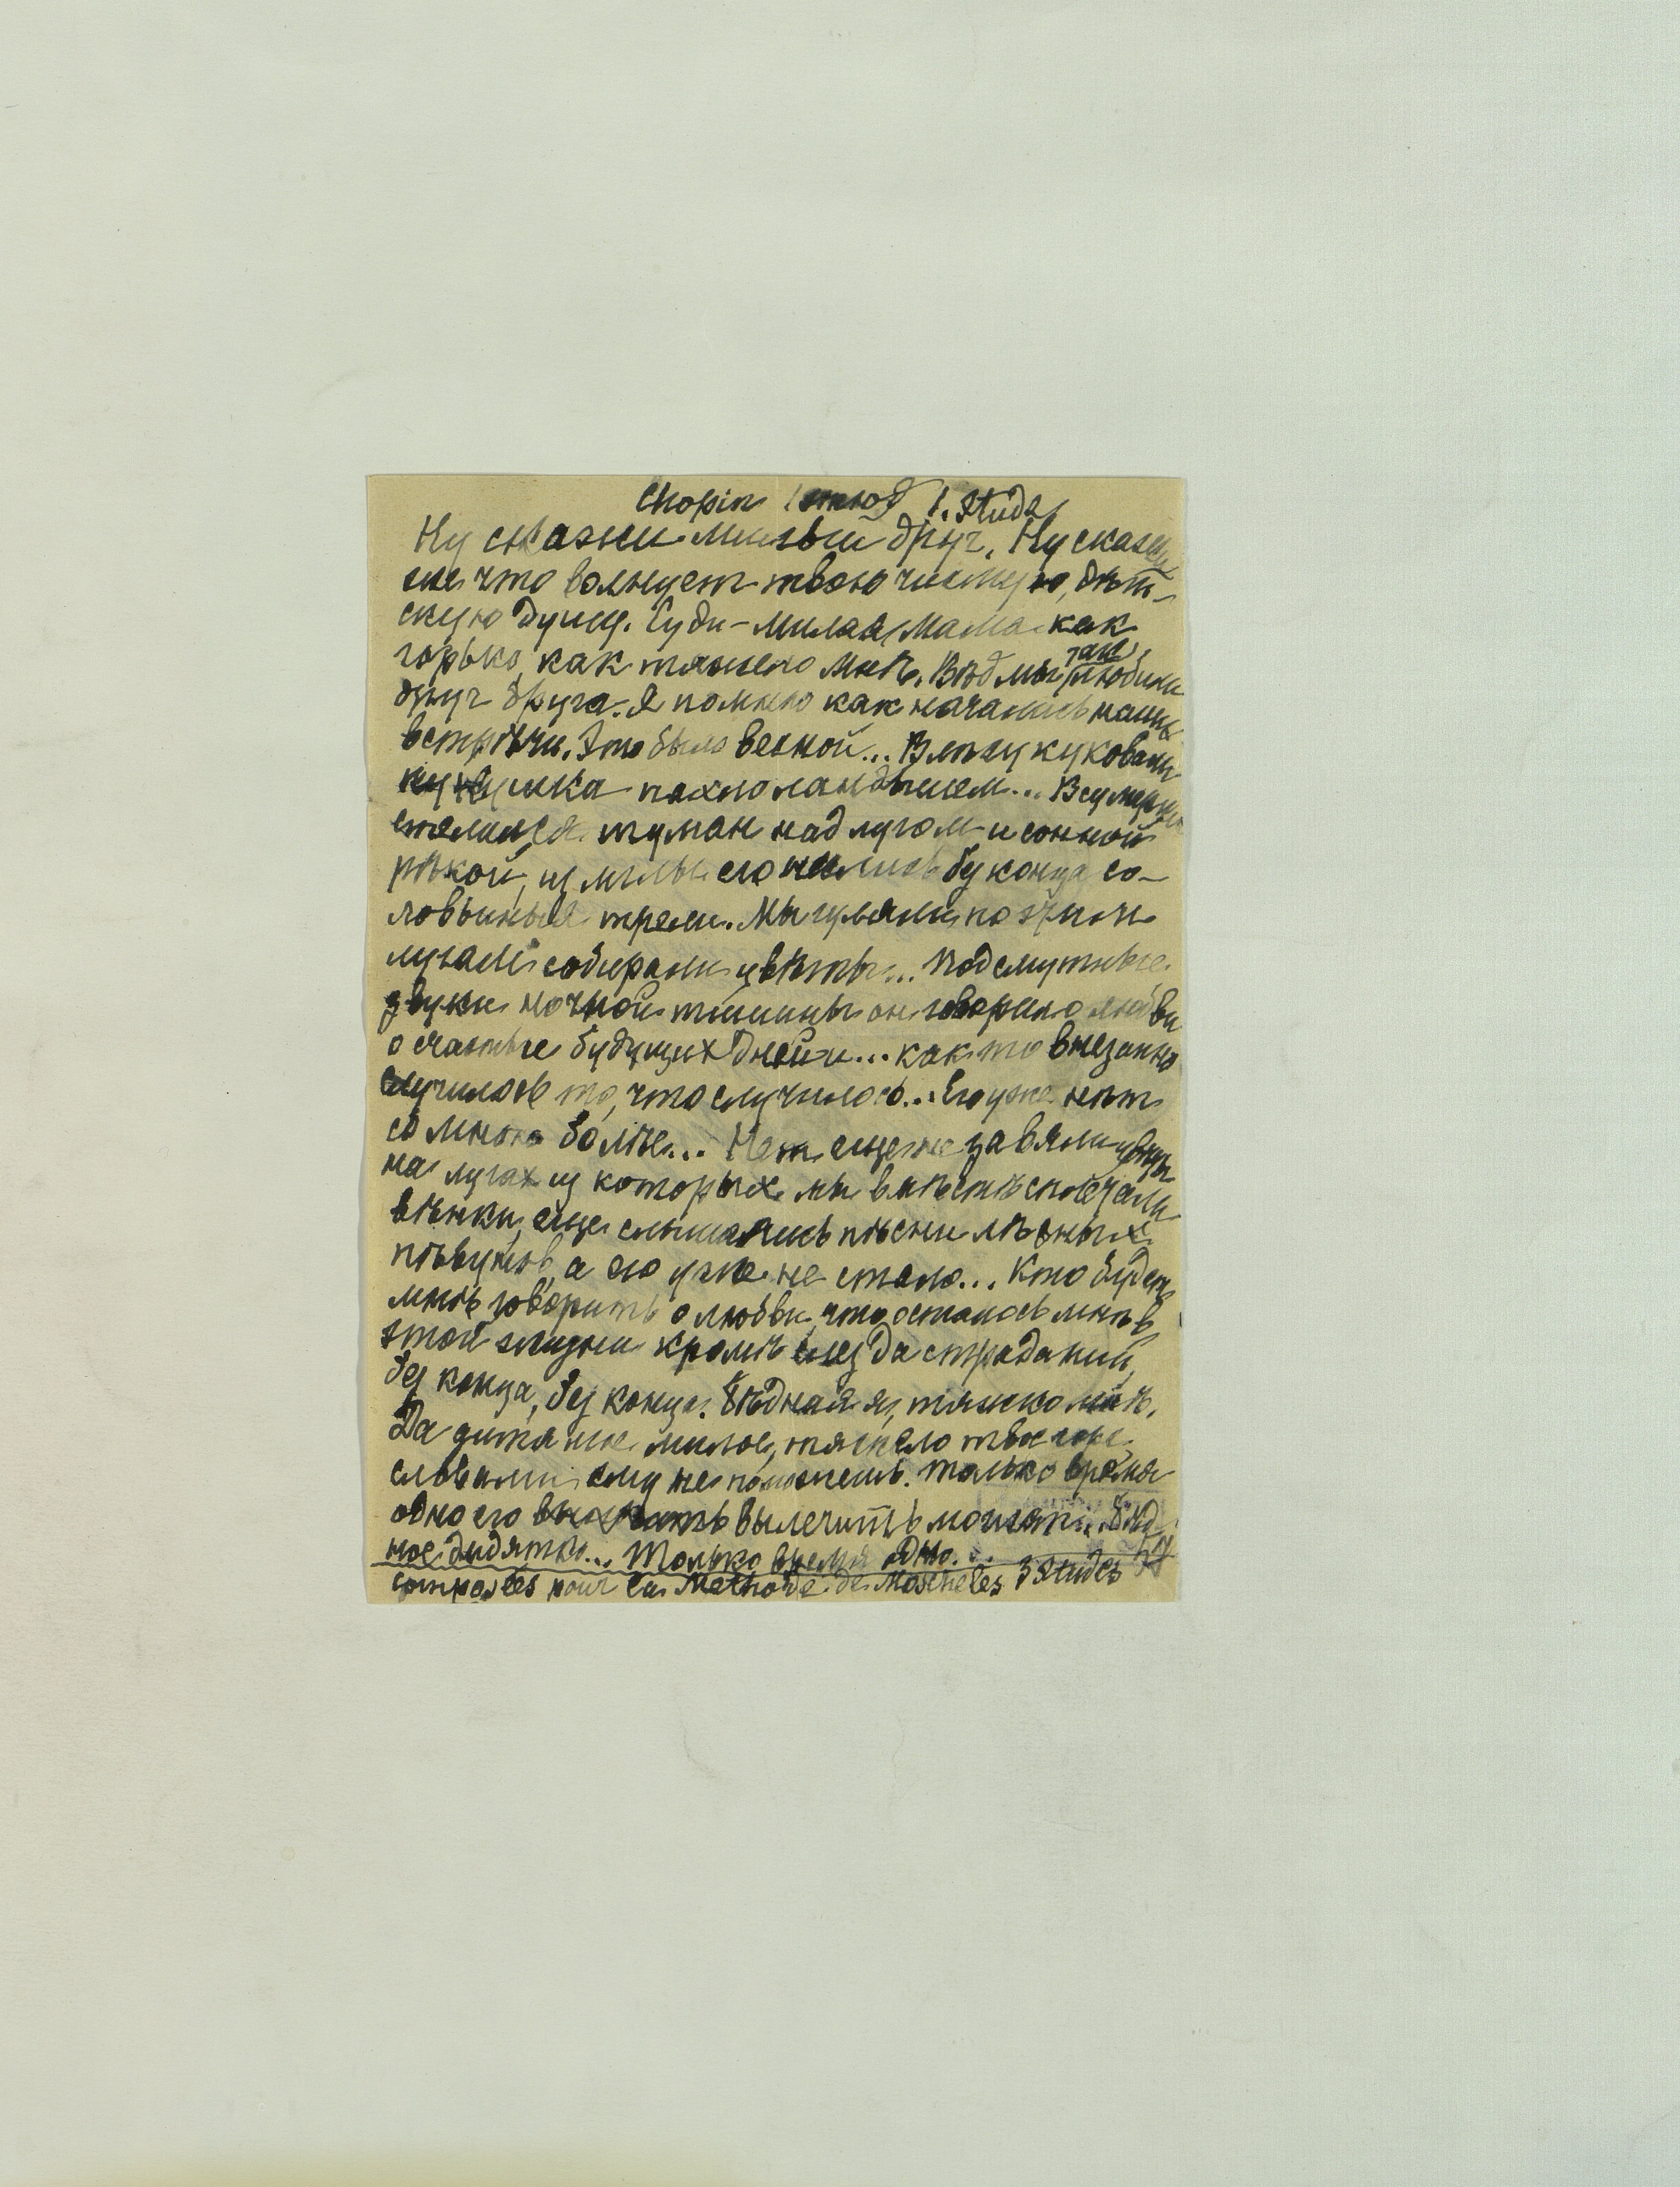 Chopin 1 этюд 1. Etude
Ну скажи милый друг, Ну скажи
же что волнует твою чистую, дѣт-
скую душу. Суди - милая мама как
горько, как тяжело мнѣ. Вѣд мы так любили
друг друга. Я помню как начались наши
встрѣчи. Это было весной... В лѣсу куковали
кукушка пахло ландышем... В сумерки
стелился туман над лугом и сонной
рѣкой, из мглы его неслись без конца со-
ловьиныя трели. Мы гуляли по этим
лугам собирали цвѣты... Под смутные
звуки ночной тишины он говорил о любви
о счастье будущих дней и... как то внезапно
случилось то, что случилось... Его уже нѣт
со мною болѣе... Нет еще не завяли цвѣты
на лугах из которых мы вмѣстѣ сплетали
вѣнки, еще слышались пѣсни лѣсных
пѣвунов, а его уже не стало... Кто будет
мнѣ говорить о любви, что осталось мнѣ в
этой жизни кромѣ слез да страданий,
без конца, без конца. Бѣдная я, тяжко мнѣ.
Да дитя мое милое, тяжело твое горе
словами ему не поможешь. Только время
одно его вылечить может... Бѣд
ное дидятко... Только время одно...
composées pour la Methode de Moscheles 3 Etudes 57